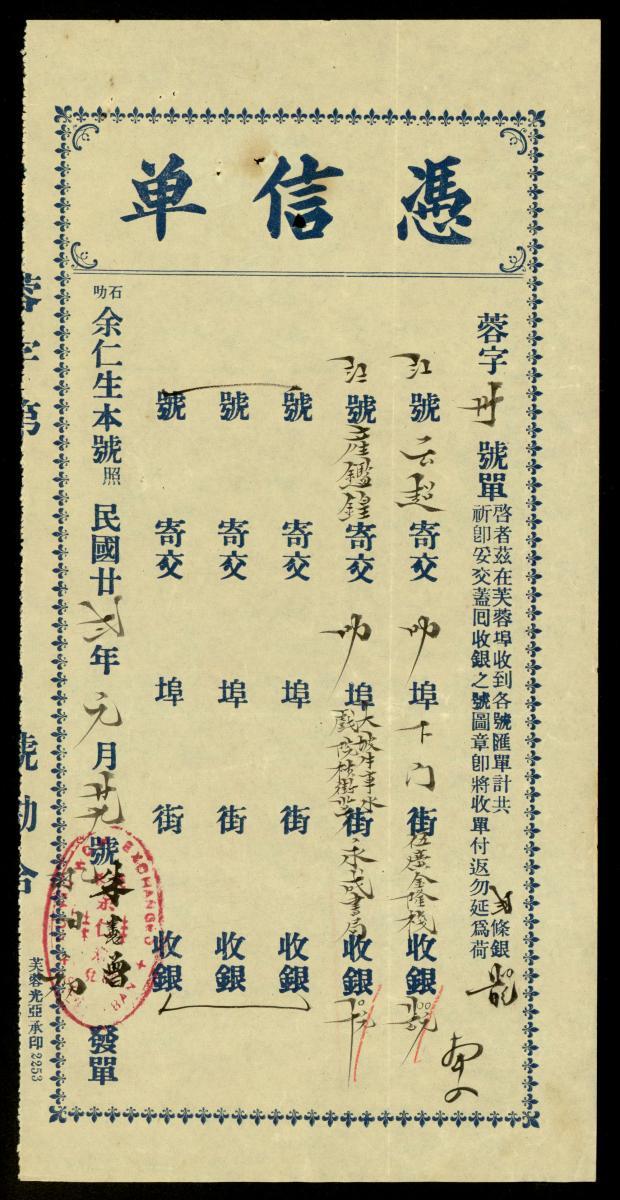 憑信单
蓉字 卅 號單
啓者茲在芙蓉埠收到各號匯單計共 條銀
祈卽妥交蓋囘收銀之號圖章卽將收單付返勿延爲荷
江 號 云超 寄交 叻 埠 下门 街 廣金隆棧 收銀 元
江 號 產鑑鍠 寄交 叻 埠 大坡牛車水戲院橫街 街 永成書局 收銀 元
號 寄交 埠 街 收銀
號 寄交 埠 街 收銀
號 寄交 埠 街 收銀
石叻 余仁生本號照 民國廿 年 元 月 廿九 號 發單
蓉字第 號勘合
芙蓉光亞承印2253
EXCHANGE